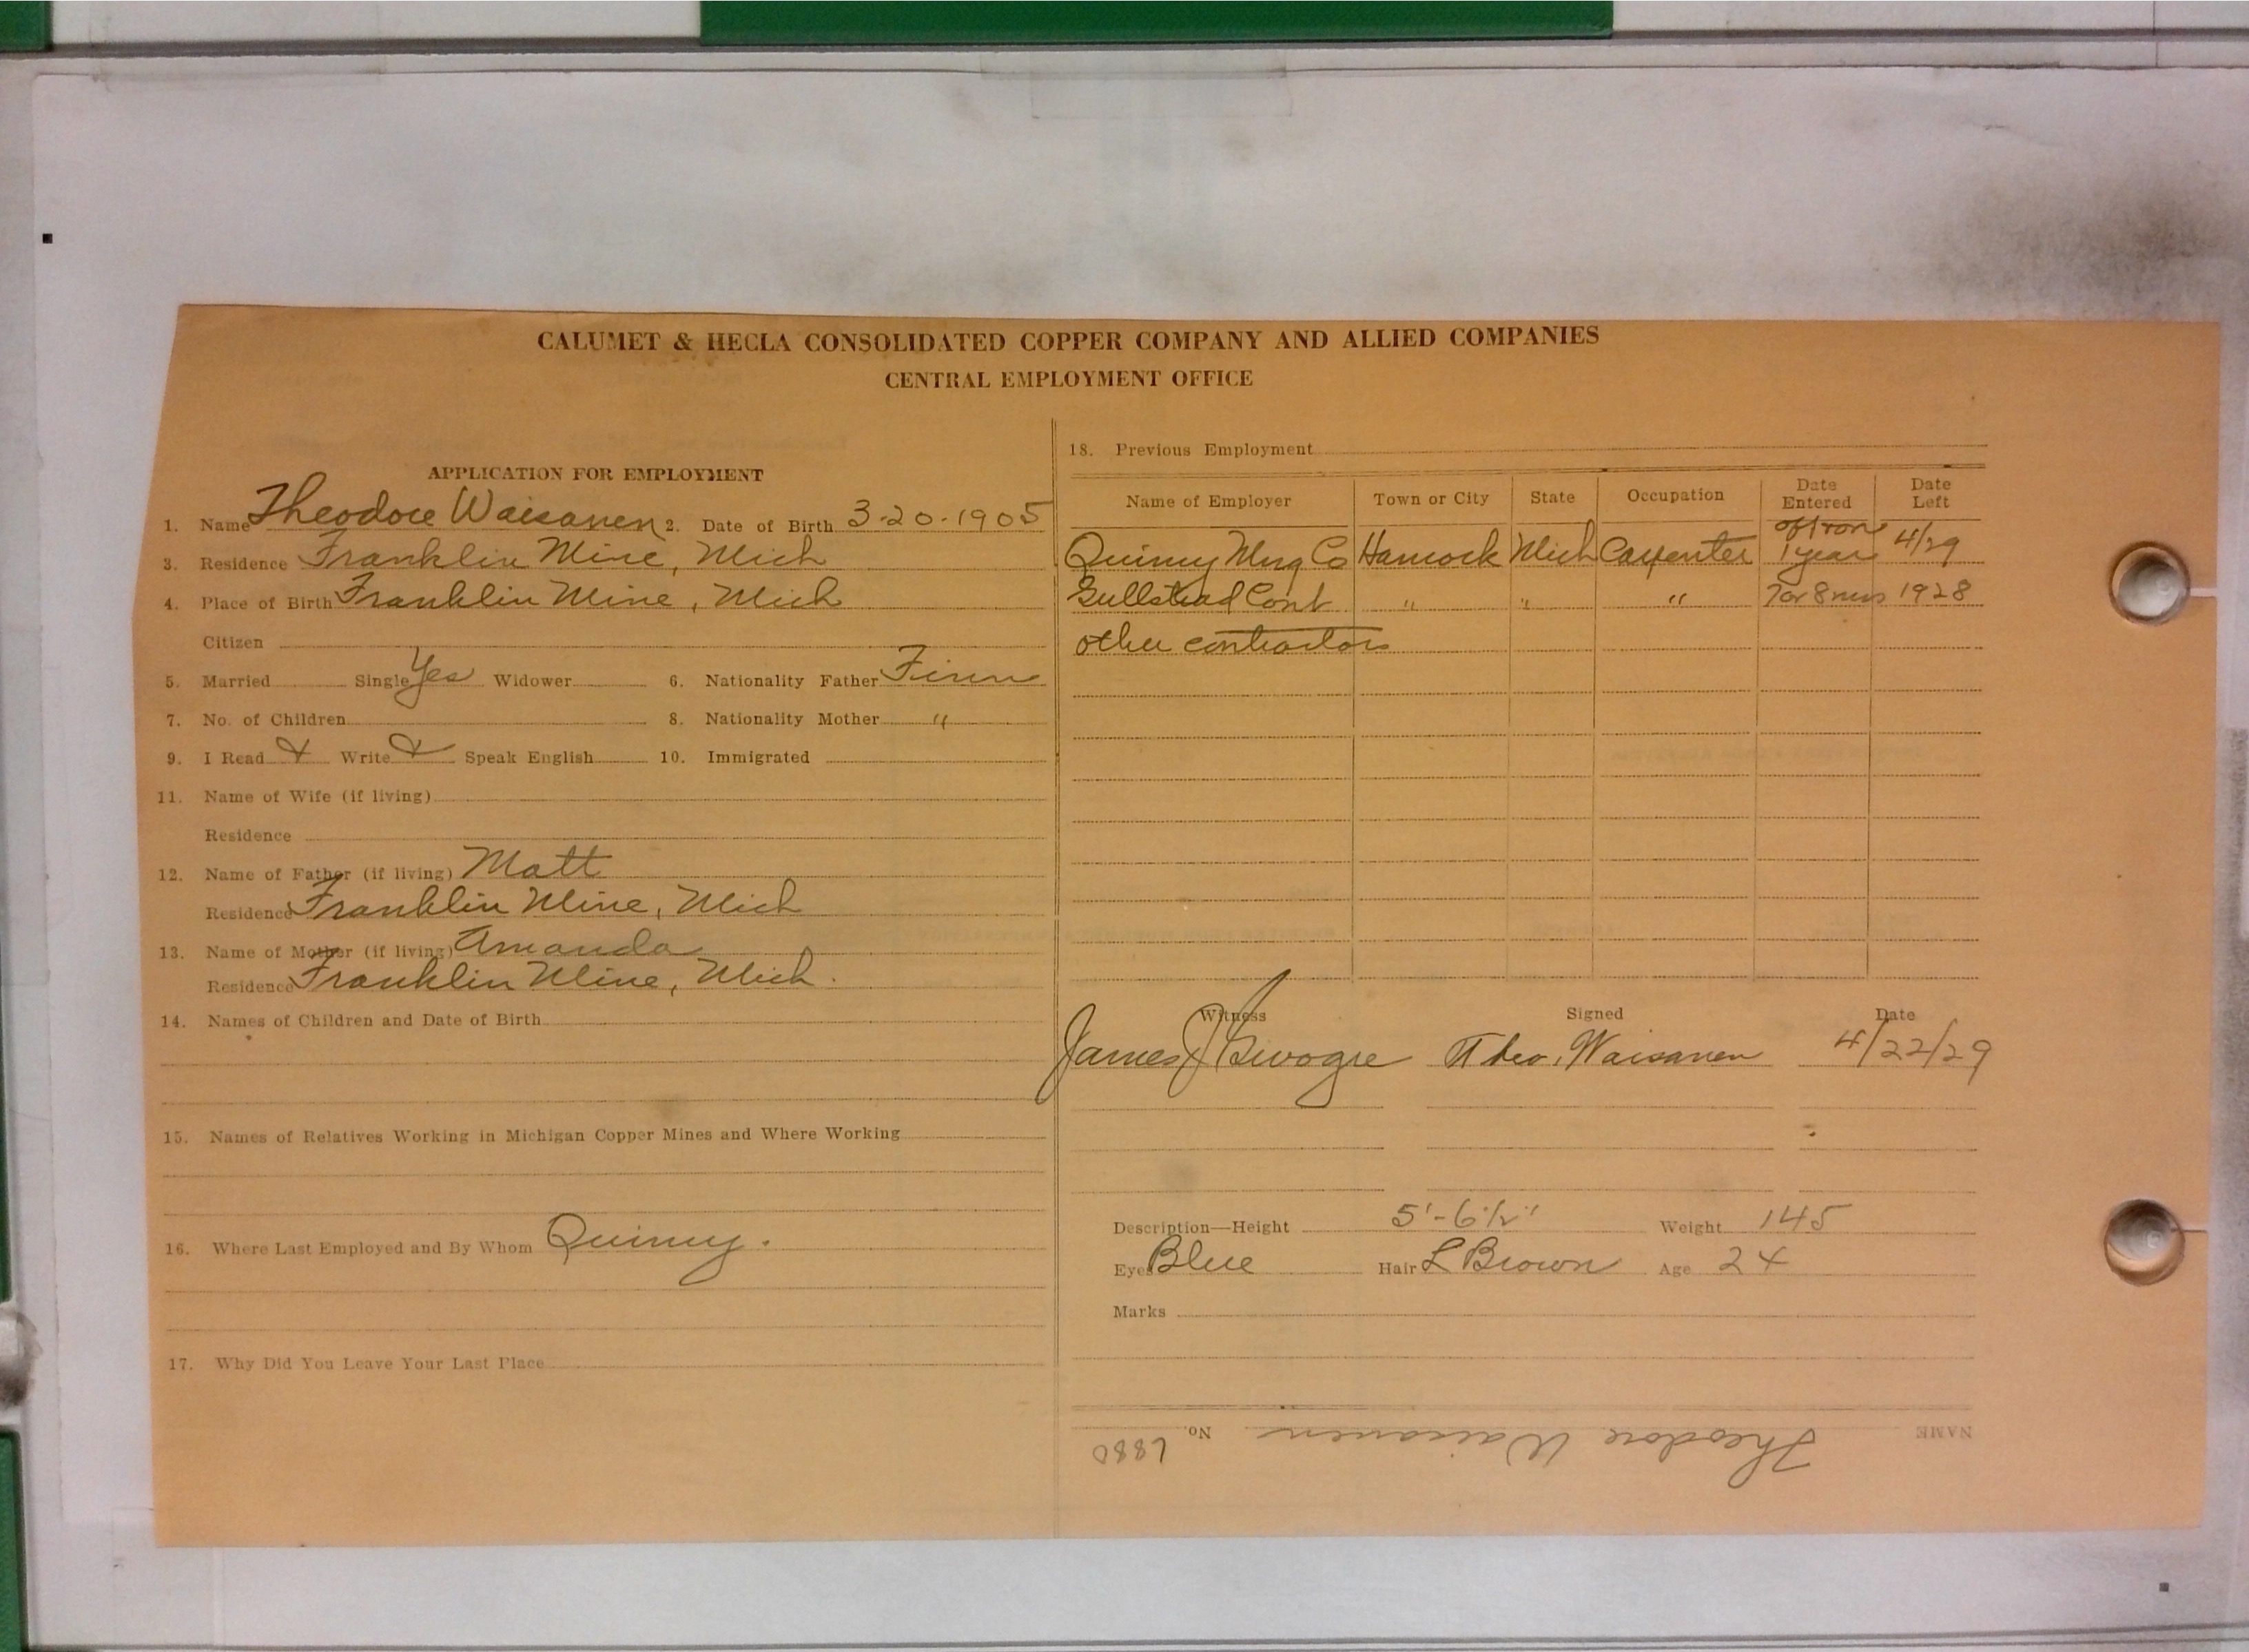 CALUMET & HECLA CONSOLIDATED COPPER COMPANY AND ALLIED COMPANIES
CENTRAL EMPLOYMENT OFFICE
APPLICATION FOR EMPLOYMENT
1. Name Theodore Waisanen 2. Date of Birth 3-20-1905
3. Residence Franklin Mine, Mich
4. Place of Birth Franklin Mine, Mich
Citizen
5. Married Single Yes Widower 6. Nationality Father Finn
7. No. of Children 8. Nationality Mother "
9. I Read & Write & Speak English 10. Immigrated
11. Name of Wife (if living)
Residence
12. Name of Father (if living) Matt
Residence Franklin Mine, Mich
13. Name of Mother (if living) Amanda
Residence Franklin Mine, Mich.
14. Names of Children and Date of Birth
15. Names of Relatives Working in Michigan Copper Mines and Where Working
16. Where Last Employed and By Whom Quincy.
17. Why Did You Leave Your Last Place
18. Previous Employment
Name of Employer Town or City State Occupation Date Entered Date Left
Quincy Mng Co Hancock Mich Carpenter off & on 1 year 4/29
Gullstead Cont " " " 7 or 8 mos 1928
other contractors
Witness Signed Date
James J Theo. Waisanen 4/22/29
Description—Height 5'-6 1/2" Weight 145
Eyes Blue Hair L Brown Age 24
Marks
NAME Theodore Waisanen No. 6880